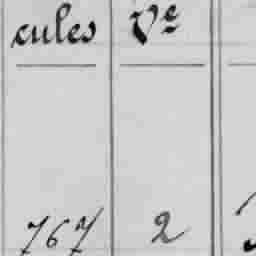 cules Vᵉ
767 2